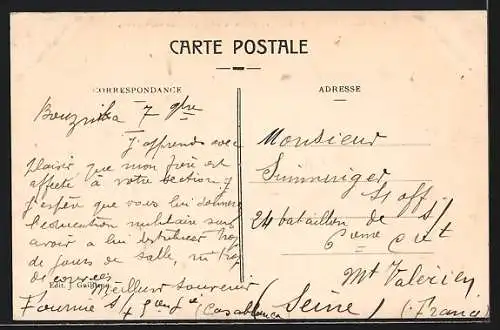 CARTE POSTALE
CORRESPONDANCE
ADRESSE
Bouznika 7 9bre
J'apprends avec
plaisir que mon frère est
affecté à votre section. J'
espère que vous lui donnerez
l'éducation militaire sans
avoir à lui distribuer trop
de jours de salle, ni trop
de corvées
Meilleur souvenir
Edit. J. Guillaume
(Casablanca
Monsieur
S/ off.
24 bataillon de
6eme Cie
Mt Valérien
(Seine) (France)